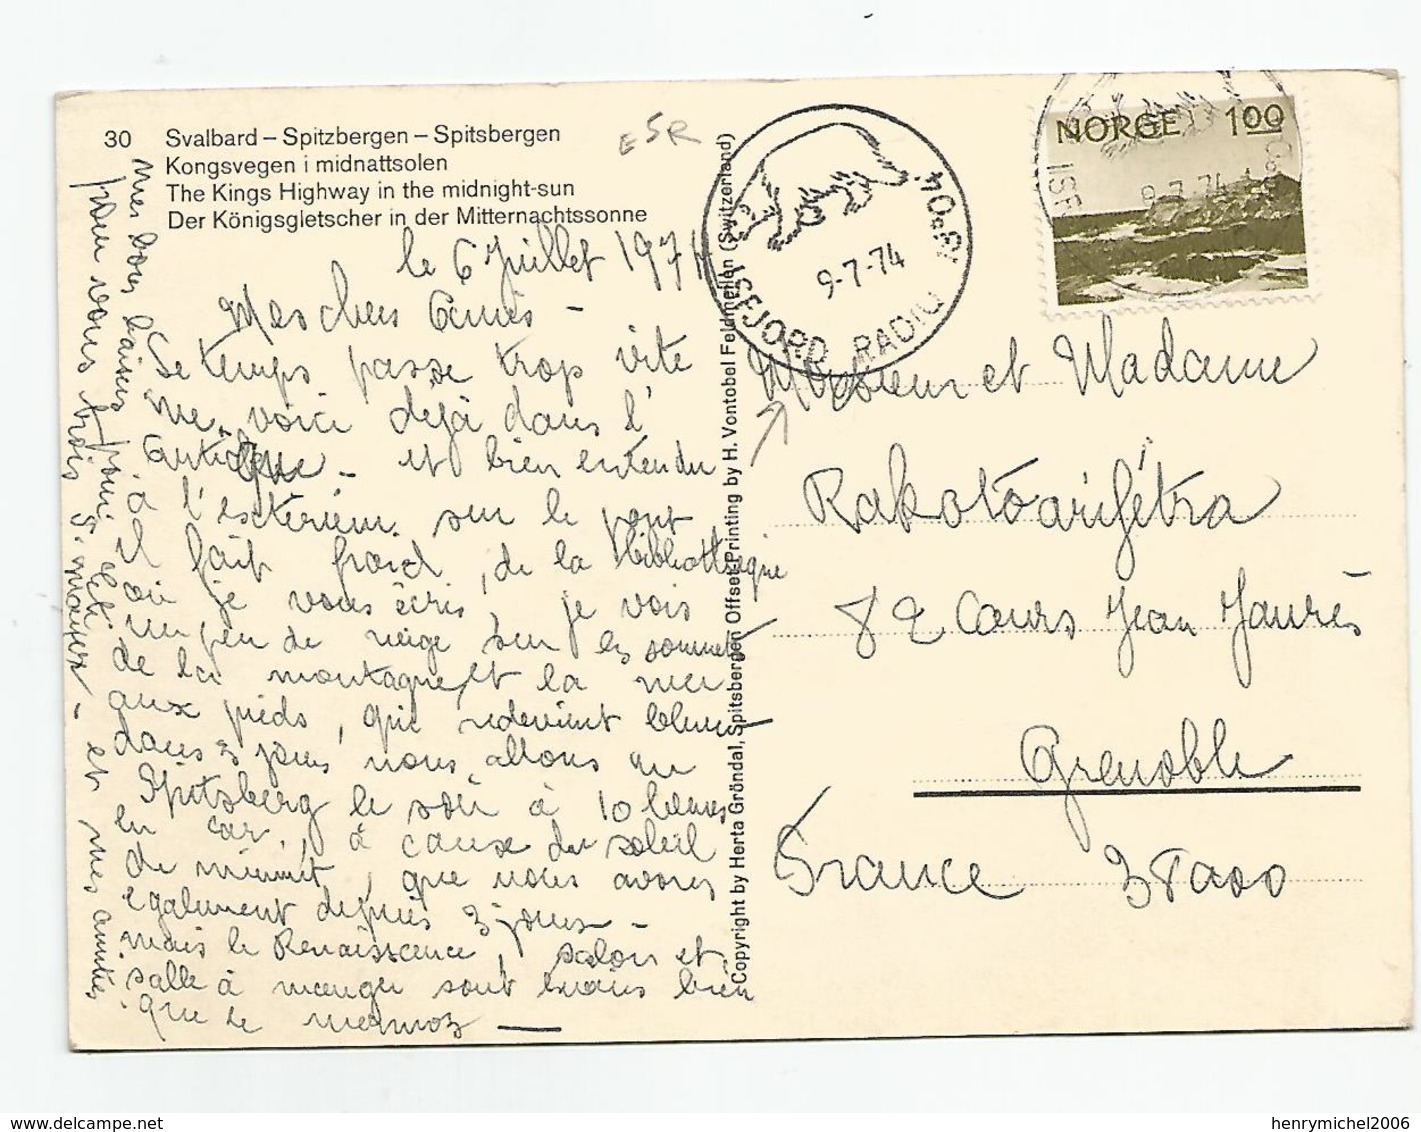 30 Svalbard – Spitzbergen – Spitsbergen
Kongsvegen i midnattsolen
The Kings Highway in the midnight-sun
Der Königsgletscher in der Mitternachtssonne
ESR
le 6 Juillet 1974
Mes chers Amis -
Le temps passe trop vite
me voici déjà dans l'
antique - et bien entendu
à l'extérieur sur le pont
il fait froid, de la bibliothèque
où je vous écris, je vois
un peu de neige sur les sommets
de la montagne et la mer
aux pieds, qui redevient bleue
dans 3 jours nous allons au
Spitzberg le soir à 10 heures
en car, à cause du soleil
de minuit, que nous avons
également depuis 3 jours -
mais le Renaissance, salon et
salle à manger sont moins bien
que le mermoz
mes bons baisers pour
pour vous trois
et mes amitiés
Copyright by Herta Gröndal, Spitsbergen Offset Printing by H. Vontobel Feldmeilen (Switzerland)
78°04'
9-7-74
ISFJORD RADIO
NORGE 100
9-7-74
ISF
Monsieur et Madame
Rakotoarifétra
82 Cours Jean Jaurès
Grenoble
France 38000
henrymichel2006